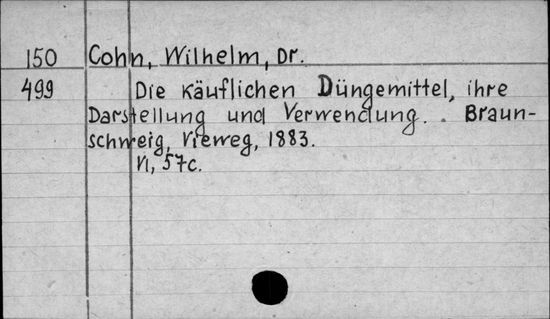 150 Cohn, Wilhelm, Dr.
499 Die käuflichen Düngemittel, ihre
Darstellung und Verwendung. . Braun-
schweig, Vieweg, 1883.
VI, 57c.